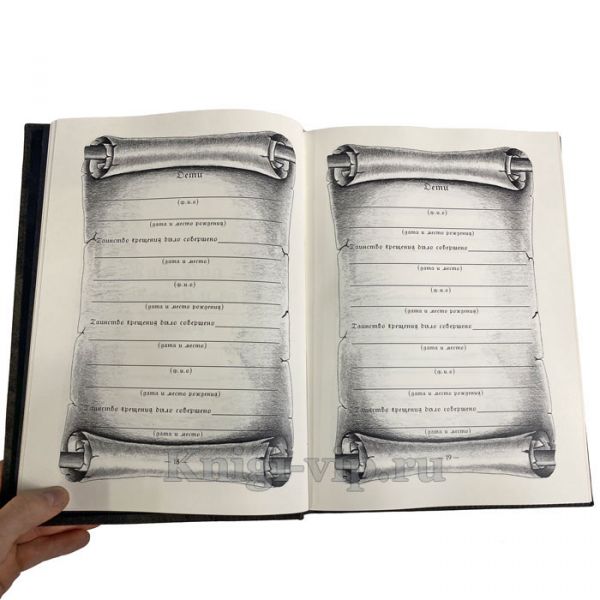 Дети
(ф.и.о)
(дата и место рождения)
Таинство крещения было совершено
(дата и место)
(ф.и.о)
(дата и место рождения)
Таинство крещения было совершено
(дата и место)
(ф.и.о)
(дата и место рождения)
Таинство крещения было совершено
(дата и место)
18
Дети
(ф.и.о)
(дата и место рождения)
Таинство крещения было совершено
(дата и место)
(ф.и.о)
(дата и место рождения)
Таинство крещения было совершено
(дата и место)
(ф.и.о)
(дата и место рождения)
Таинство крещения было совершено
(дата и место)
19
Knigi-vip.ru